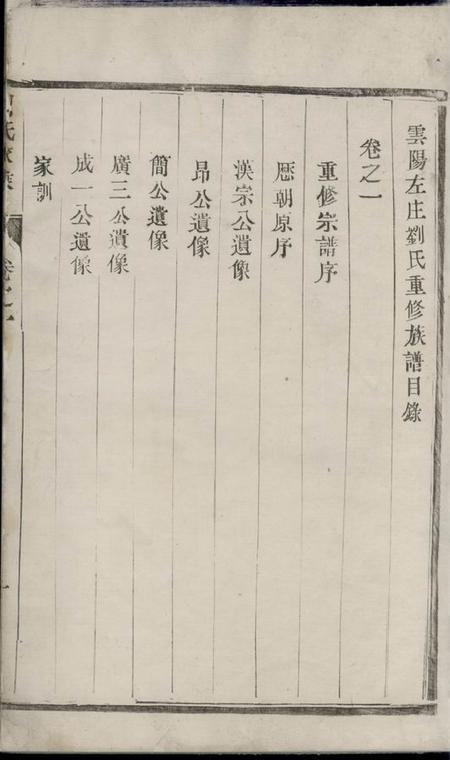 雲陽左庄劉氏重修族譜目錄
卷之一
重修宗譜序
歷朝原序
漢宗公遺像
昂公遺像
簡公遺像
廣三公遺像
成一公遺像
家訓
卷之一